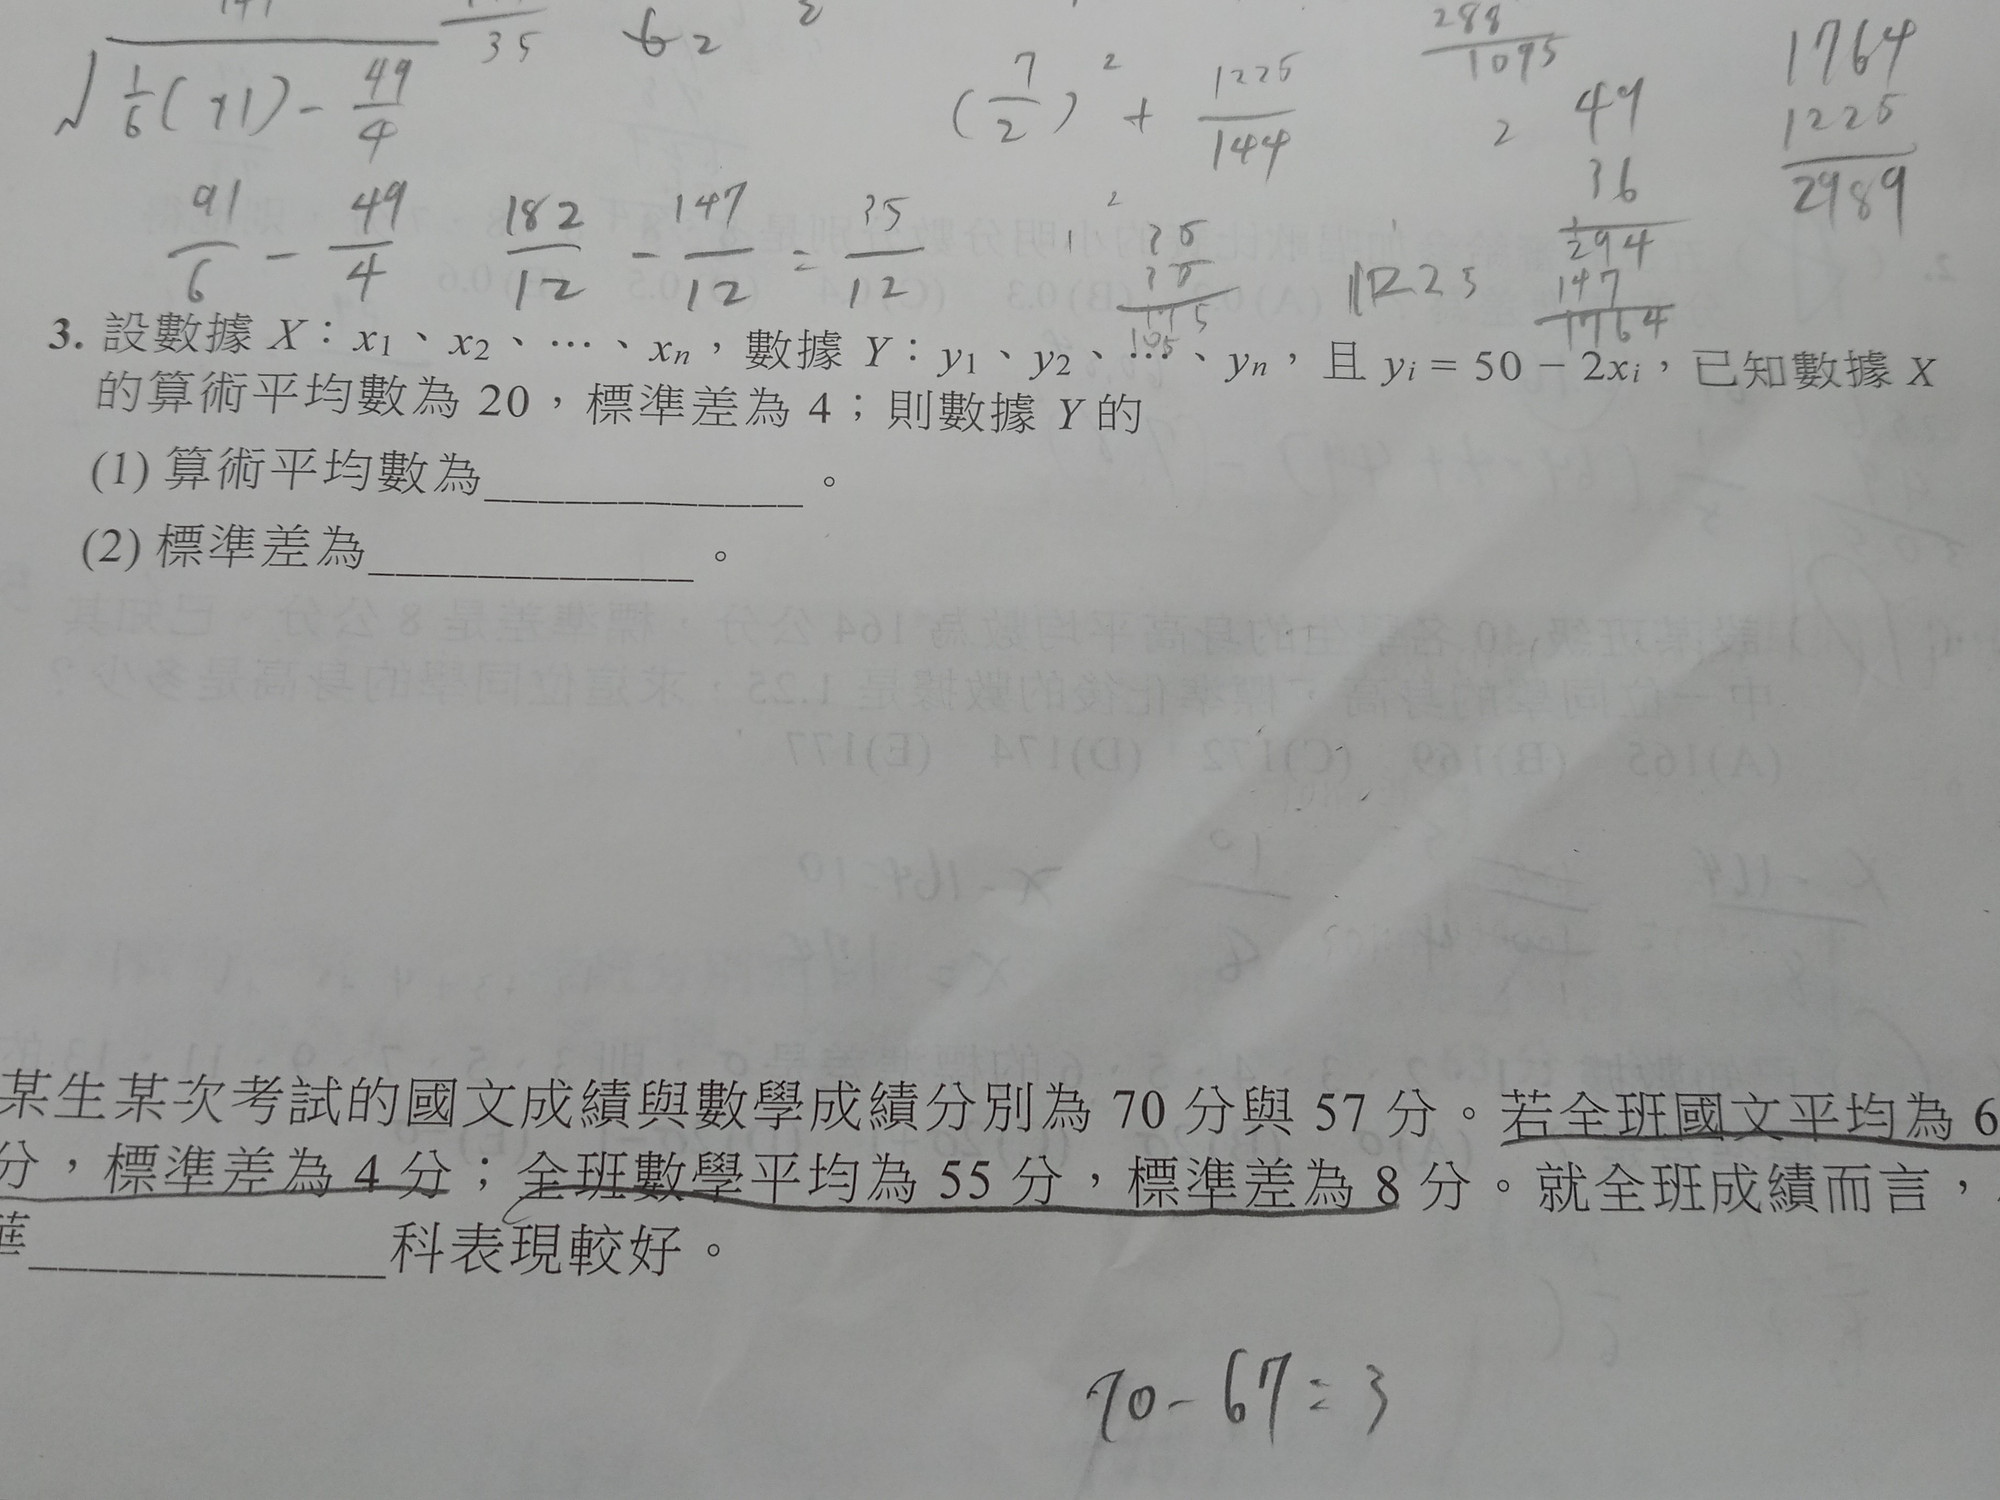 35 62 2
√ 1/6 (91) - 49/4
(7/2)² + 1225/144
288/1095
2 49
36
294
147
1764
1764
1225
2989
91/6 - 49/4 182/12 - 147/12 = 35/12
35
35
175
105
1225
3. 設數據 X：x1、x2、…、xn，數據 Y：y1、y2、…、yn，且 yi = 50 − 2xi，已知數據 X
的算術平均數為 20，標準差為 4；則數據 Y 的
(1) 算術平均數為____________。
(2) 標準差為____________。
某生某次考試的國文成績與數學成績分別為 70 分與 57 分。若全班國文平均為 6
分，標準差為 4 分；全班數學平均為 55 分，標準差為 8 分。就全班成績而言，
華____________科表現較好。
70-67=3